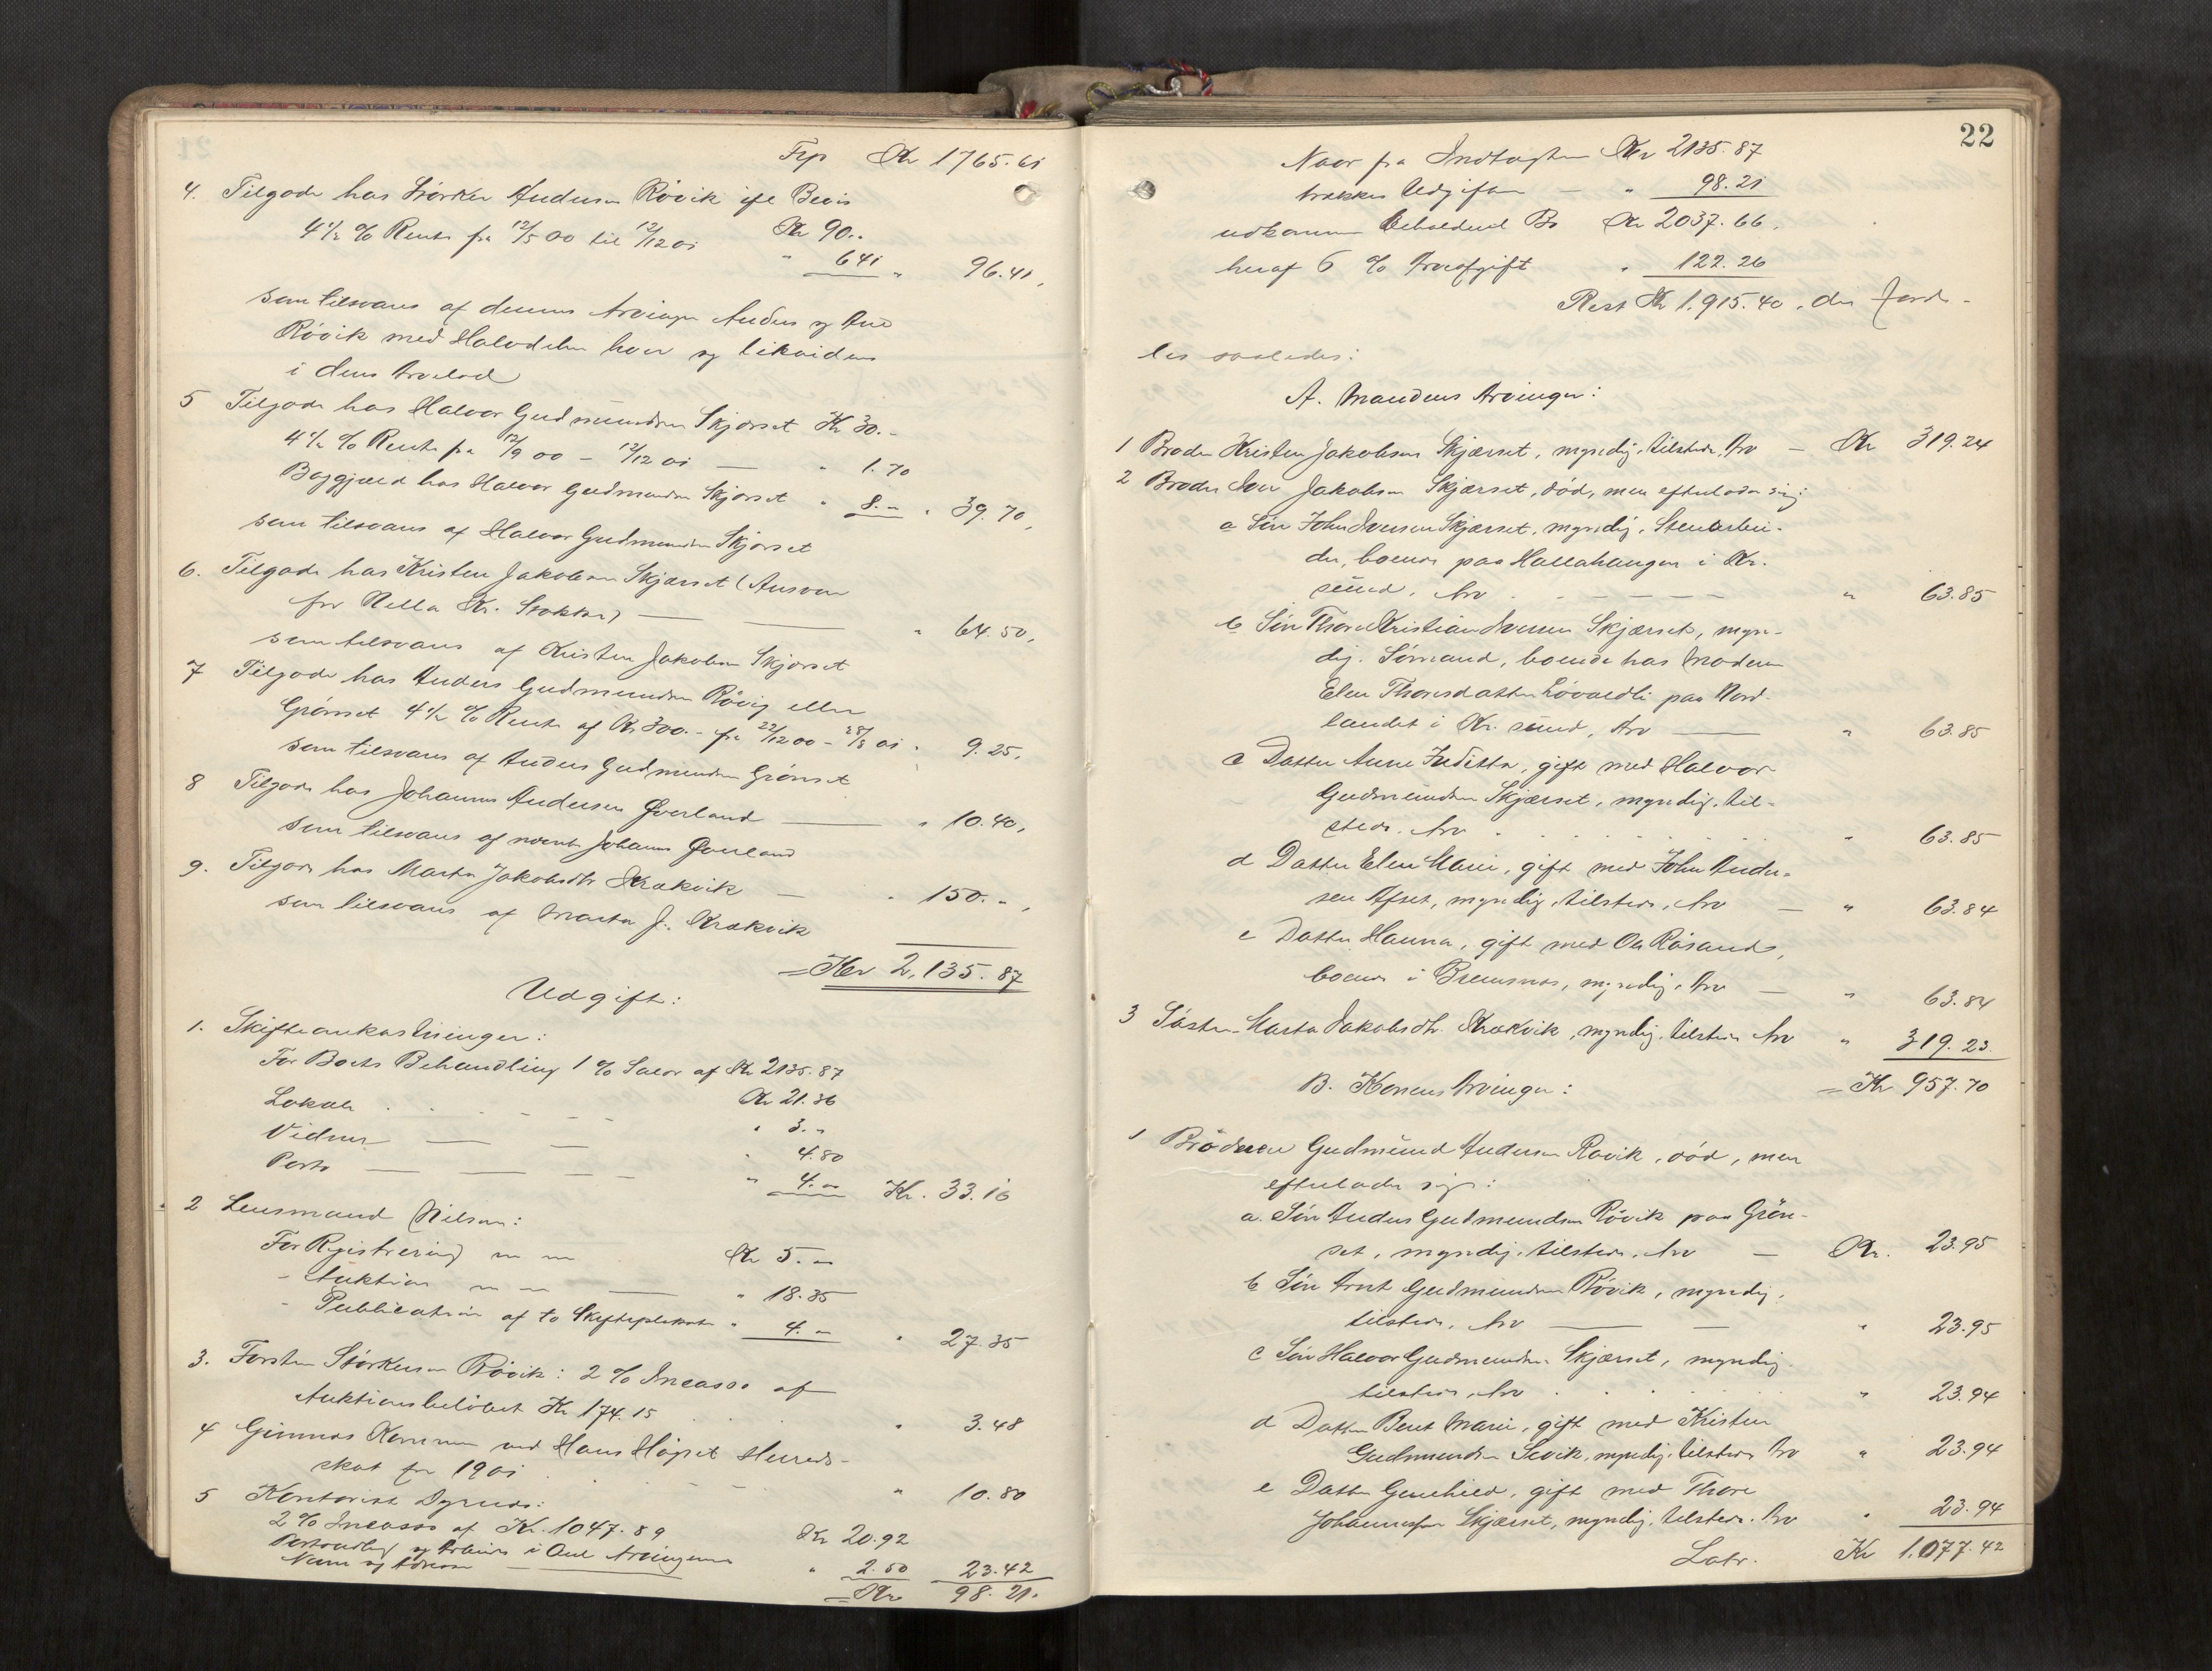 Trp Kr 1765.61
4. Tilgode har Størker Andersen Røvik ifl Bevis
Kr 90..
4½ % Rente fra 12/5 00 til 12/12 01 " 6.41 " 96.41,
som tilsvares af dennes Arvinger Anders og Ane
Røvik med Halvdelen hver og likvideres
i deres Arvelod
5 Tilgode har Halvor Gudmundsen Skjærset Kr 30.-
4½ % Rente fra 12/9 00 - 12/12 01 — " 1.70
Boggjæld har Halvor Gudmundsen Skjærset " 8.- " 39.70,
som tilsvares af Halvor Gudmundsen Skjærset
6. Tilgode har Kristen Jakobsen Skjærset (Ansvar
for Nella Kr. Stokke) — — " 64.50,
som tilsvares af Kristen Jakobsen Skjærset
7 Tilgode har Anders Gudmundsen Røvig eller
Grønset 4½ % Rente af Kr 300.- fra 22/12 00 - 28/8 01 " 9.25,
som tilsvares af Anders Gudmundsen Grønset
8 Tilgode har Johannes Andersen Øverland — " 10.40,
som tilsvares af nævnte Johannes Øverland
9. Tilgode har Marta Jakobsdtr Krækvik — " 150.-,
som tilsvares af Marta J. Krækvik
= Kr 2,135.87
Udgift:
1. Skifteomkostninger:
For Boets Behandling 1 % Salær af Kr 2135.87
Kr 21.36
Lokale . . - - - " 3.-
Vidner — — " 4.80
Porto — — — — " 4.- Kr. 33.16
2 Lensmand Nilsen:
For Registrering m m Kr 5.-
- Auktion m m — " 18.35
- Publication af to Skifteplakater " 4.- " 27.35
3. Torsten Størkersen Røvik: 2 % Incasso af
Auktionsbeløbet Kr 174.15 . . . " 3.48
4 Gimnæs Kommune ved Hans Høgset Herreds-
skat for 1901 . - - " 10.80
5 Kontorist Dyrnæs:
2 % Incasso af Kr. 1047.89 Kr 20.92
og Arbeide i Anl Arvingernes
Navne og Adresse — " 2.50 23.42
= Kr 98.21.
22
Naar fra Indtægten Kr 2135.87
trækkes Udgiften — " 98.21
udkommer Beholdende Bo Kr 2037.66,
heraf 6 % Arveafgift " 122.26
Rest Kr 1.915.40, der forde-
les saaledes:
A. Mandens Arvinger:
1 Broder Kristen Jakobsen Skjærset, myndig, tilstede, Arv — Kr 319.24
2 Broder Iver Jakobsen Skjærset, død, men efterlader sig:
a Søn John Iversen Skjærset, myndig, Stenarbei-
der, boende paa Hallahaugen i Kr.
sund, Arv . - — — — — " 63.85
b Søn Thore Kristian Iversen Skjærset, myn-
dig. Sømand, boende hos Moderen
Elen Thoresdatter Løvaldli paa Nord-
landet i Kr. sund, Arv — " 63.85
c Datter Anne Juditta, gift med Halvor
Gudmundsen Skjærset, myndig, til-
stede, Arv . . . . . . . " 63.85
d Datter Elen Marie, gift med John Ander-
sen Afset, myndig, tilstede, Arv — " 63.84
e Datter Hanna, gift med Ola Røsand,
boende i Bremsnes, myndig, Arv — " 63.84
3 Søster Marta Jakobsdtr. Krækvik, myndig, tilstede Arv " 319.23.
= Kr 957.70
B. Konens Arvinger:
1 Broderen Gudmund Andersen Røvik, død, men
efterlader sig:
a. Søn Anders Gudmundsen Røvik paa Grøn-
set, myndig, tilstede, Arv — Kr. 23.95
b Søn Arnt Gudmundsen Røvik, myndig,
tilstede, Arv — — " 23.95
c Søn Halvor Gudmundsen Skjærset, myndig
tilstede, Arv . . . . . " 23.94
d Datter Berit Marie, gift med Kristen
Gudmundsen Sevik, myndig, tilstede Arv " 23.94
e Datter Gunhild, gift med Thore
Johannesen Skjærset, myndig, tilstede. Arv " 23.94
Latr. Kr 1.077.42